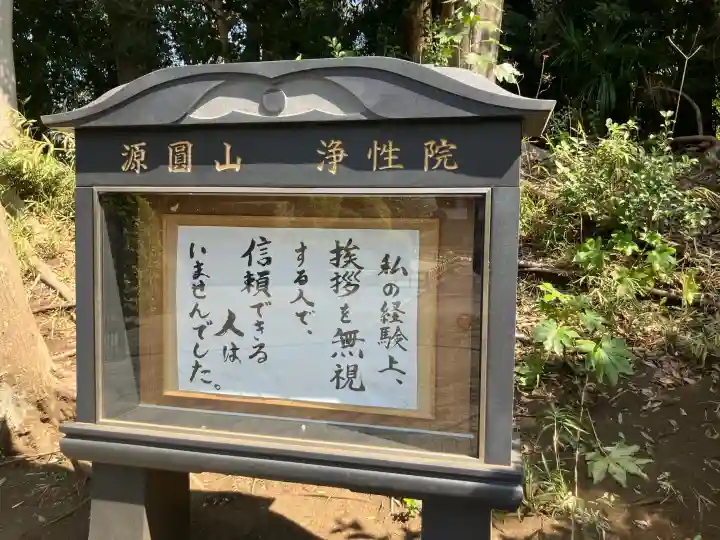 源圓山 浄性院
私の経験上、
挨拶を無視
する人で、
信頼できる
人は
いませんでした。